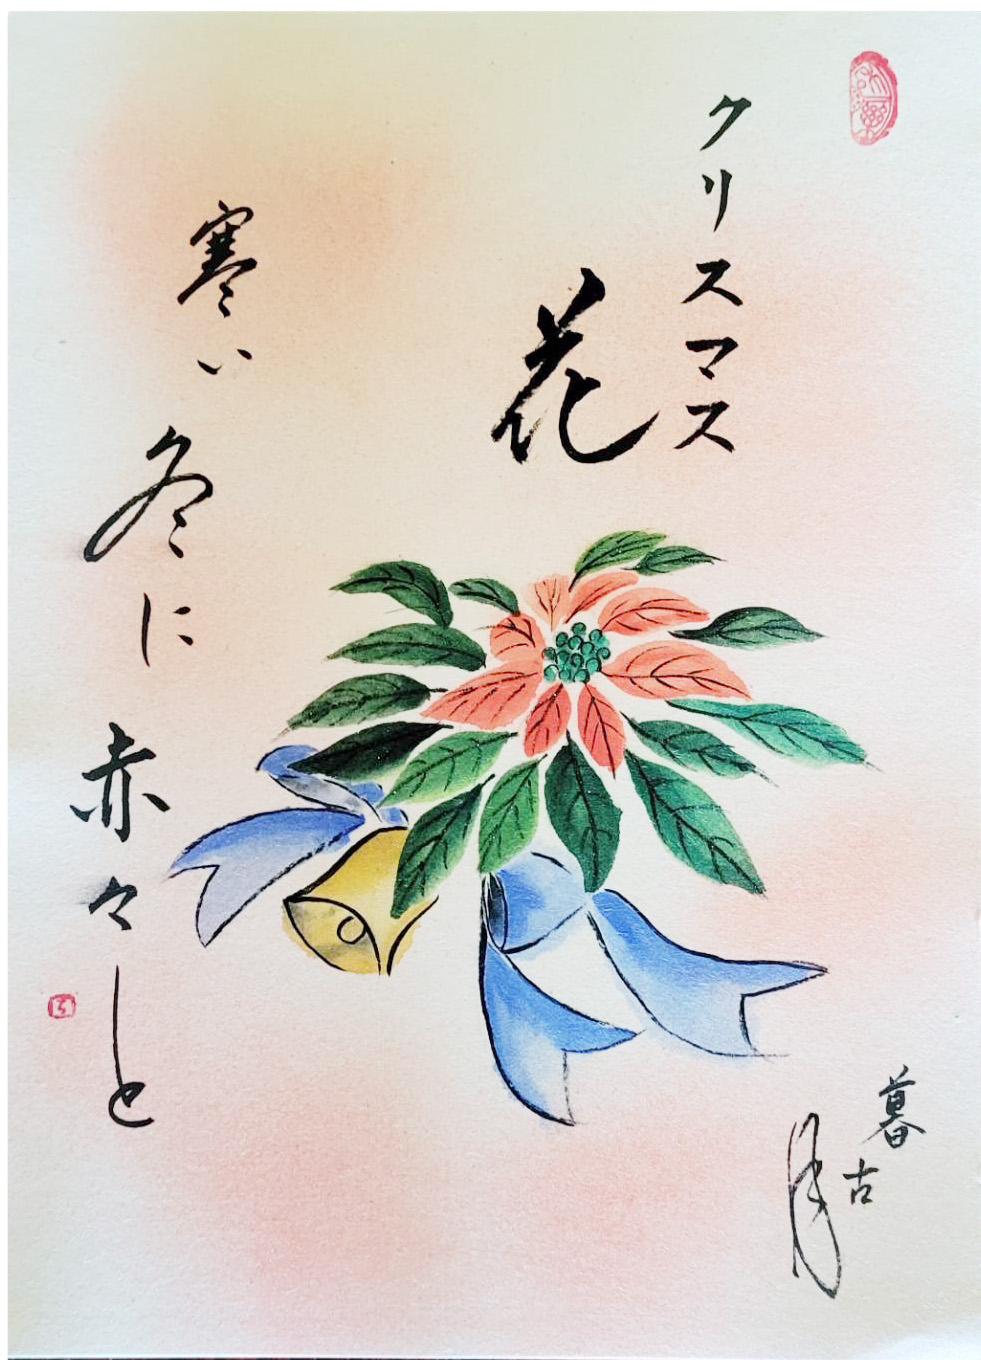 クリスマス
花
寒い冬に赤々と
暮古月